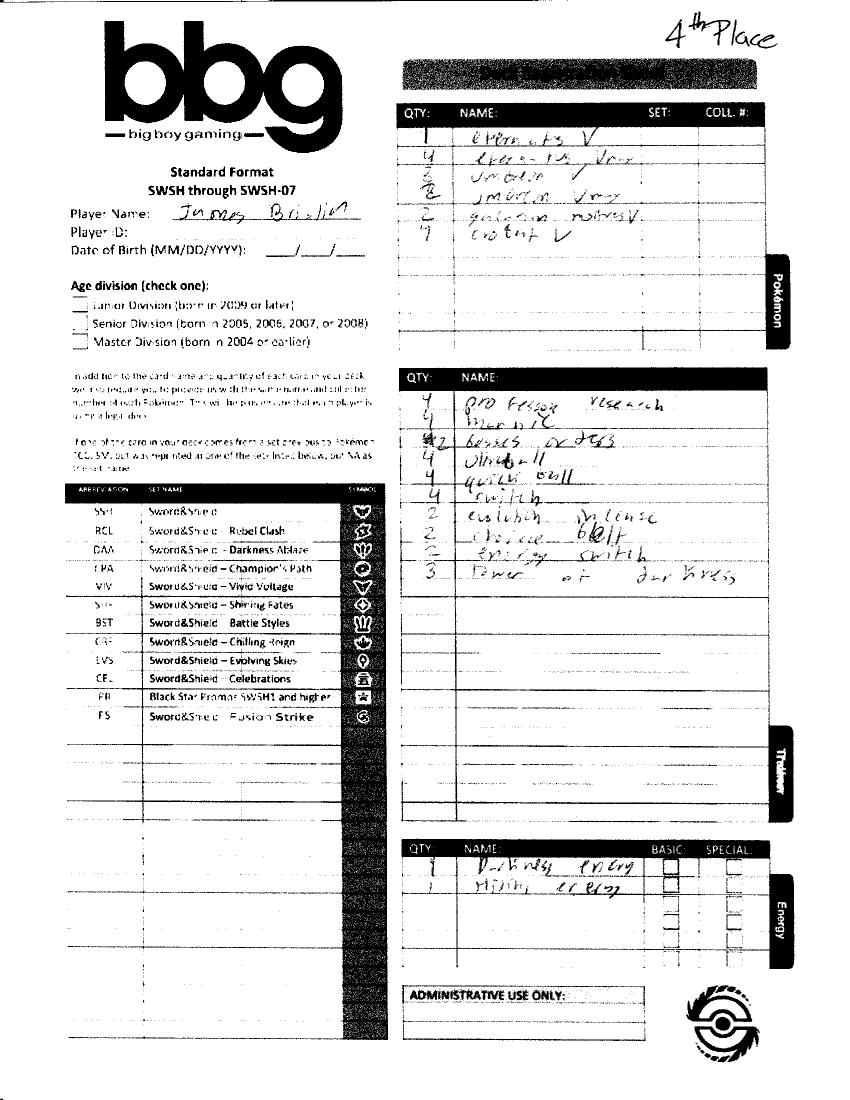 4th Place
bbg
big boy gaming
Standard Format
SWSH through SWSH-07
Player Name: James
Player ID:
Date of Birth (MM/DD/YYYY): ___/___/___
Age division (check one):
Junior Division (born in 2009 or later)
Senior Division (born in 2005, 2006, 2007, or 2008)
Master Division (born in 2004 or earlier)
In addition to the card name and quantity of each card in your deck,
we also require you to provide us with the set name and collector
number of each Pokémon. This will help us ensure that each player is
using a legal deck.
If one of the card in your deck comes from a set previous to Pokémon
TCG: SM, but was reprinted in one of the sets listed below, put NA as
the set name.
ABBREVIATION SET NAME SYMBOL
SSH Sword&Shield
RCL Sword&Shield - Rebel Clash
DAA Sword&Shield - Darkness Ablaze
CPA Sword&Shield – Champion's Path
VIV Sword&Shield – Vivid Voltage
SHF Sword&Shield – Shining Fates
BST Sword&Shield Battle Styles
CRE Sword&Shield – Chilling Reign
EVS Sword&Shield – Evolving Skies
CEL Sword&Shield – Celebrations
PR Black Star Promos SWSH1 and higher
FS Sword&Shield Fusion Strike
Deck Registration Sheet
QTY: NAME: SET: COLL. #:
1 eternatus V
4 eternatus Vmax
3 umbreon V
2 umbreon Vmax
2 galarian moltres V
4 crobat V
Pokémon
QTY: NAME:
4 professor research
4 marnie
2 bosses orders
4 ultraball
4 quick ball
4 switch
2 evolution incense
2 choice belt
2 energy switch
3 Tower of darkness
Trainer
QTY: NAME: BASIC: SPECIAL:
Darkness energy
1 Hiding energy
Energy
ADMINISTRATIVE USE ONLY: